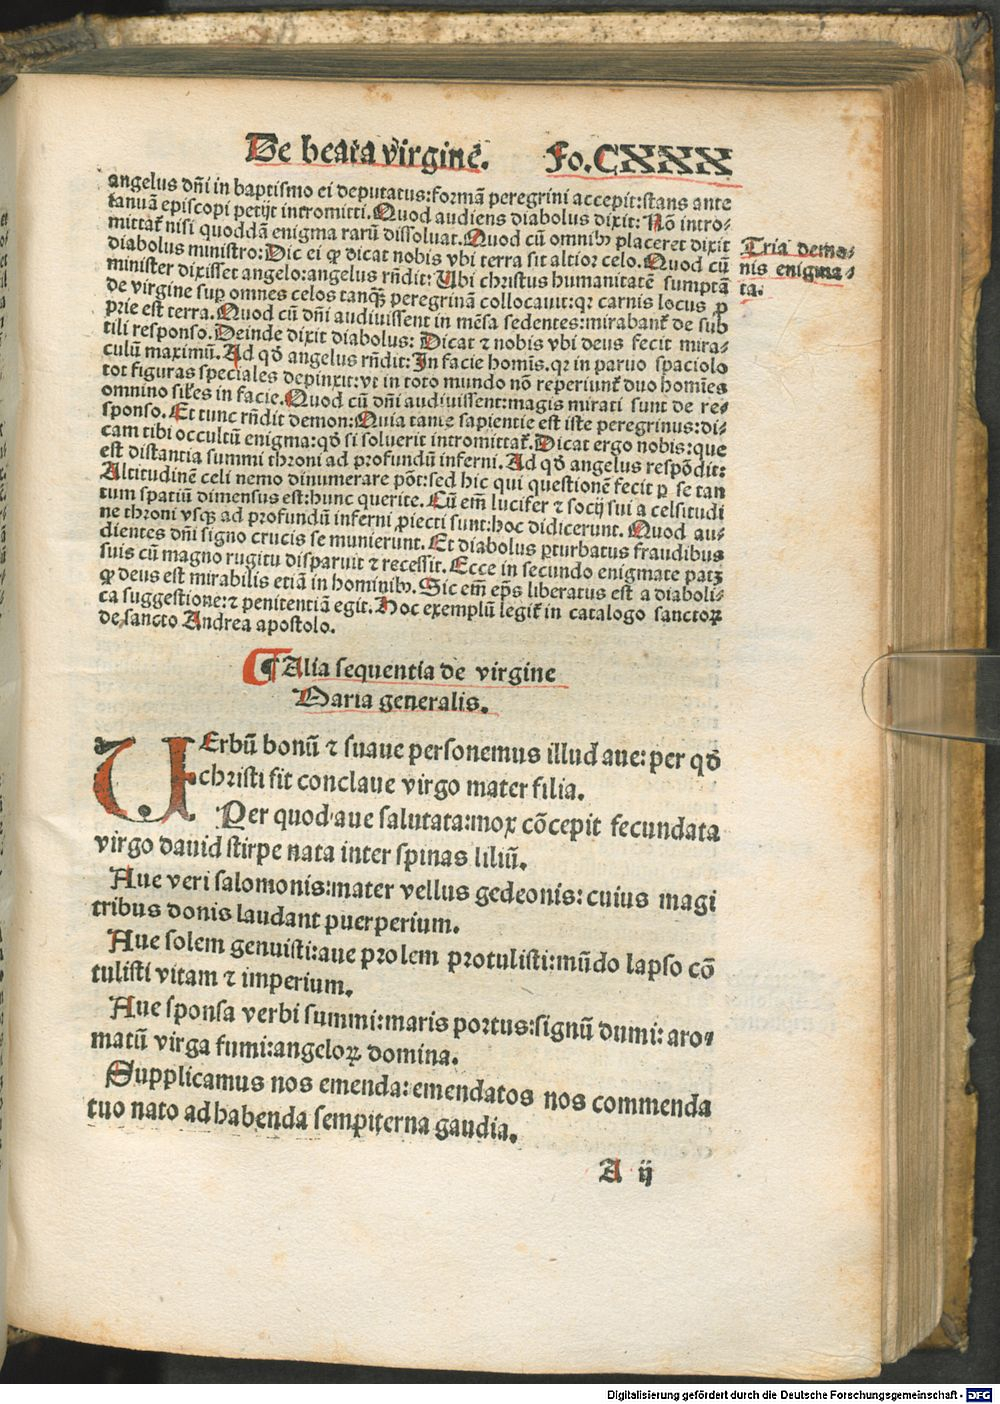 De beata virgine. Fo. CXXX
angelus dñi in baptismo ei deputatus: formã peregrini accepit: stans ante
ianuã episcopi petijt intromitti. Quod audiens diabolus dixit: Nõ intro⸗
mittat̃ nisi quoddã enigma rarũ dissoluat. Quod cũ omnibꝫ placeret dixit
diabolus ministro: Dic ei ꝙ dicat nobis vbi terra sit altior celo. Quod cũ
minister dixisset angelo: angelus rñdit: Ubi christus humanitatẽ sumptã
de virgine suꝑ omnes celos tanqꝫ peregrinã collocauit: qꝛ carnis locus ꝓ
prie est terra. Quod cũ dñi audiuissent in mẽsa sedentes: mirabant̃ de sub
tili responso. Deinde dixit diabolus: Dicat ⁊ nobis vbi deus fecit mira⸗
culũ maximũ. Ad qđ angelus rñdit: In facie homĩs. qꝛ in paruo spaciolo
tot figuras speciales depinxit: vt in toto mundo nõ reperiunt̃ duo homĩes
omnino siľes in facie. Quod cũ dñi audiuissent: magis mirati sunt de re⸗
sponso. Et tunc rñdit demon: Quia tante sapientie est iste peregrinus: di⸗
cam tibi occultũ enigma: qđ si soluerit intromittat̃. Dicat ergo nobis: que
est distantia summi throni ad profundũ inferni. Ad qđ angelus respõdit:
Altitudinẽ celi nemo dinumerare põt: sed hic qui questionẽ fecit ꝑ se tan
tum spatiũ dimensus est: hunc querite. Cũ em̃ lucifer ⁊ socij sui a celsitudi
ne throni vsqꝫ ad profundũ inferni ꝓiecti sunt: hoc didicerunt. Quod au⸗
dientes dñi signo crucis se munierunt. Et diabolus ꝑturbatus fraudibus
suis cũ magno rugitu disparuit ⁊ recessit. Ecce in secundo enigmate patꝫ
ꝙ deus est mirabilis etiã in hominibꝫ. Sic em̃ ep̃s liberatus est a diaboli⸗
ca suggestione: ⁊ penitentiã egit. Hoc exemplũ legit̃ in catalogo sanctoꝝ
de sancto Andrea apostolo.
Tria demo⸗
nis enigma⸗
ta.
¶ Alia sequentia de virgine
Maria generalis.
UErbũ bonũ ⁊ suaue personemus illud aue: per qđ
christi fit conclaue virgo mater filia.
Per quod aue salutata: mox cõcepit fecundata
virgo dauid stirpe nata inter spinas liliũ.
Aue veri salomonis: mater vellus gedeonis: cuius magi
tribus donis laudant puerperium.
Aue solem genuisti: aue prolem protulisti: mũdo lapso cõ
tulisti vitam ⁊ imperium.
Aue sponsa verbi summi: maris portus: signũ dumi: aro⸗
matũ virga fumi: angeloꝝ domina.
Supplicamus nos emenda: emendatos nos commenda
tuo nato ad habenda sempiterna gaudia.
A ij
Digitalisierung gefördert durch die Deutsche Forschungsgemeinschaft - DFG